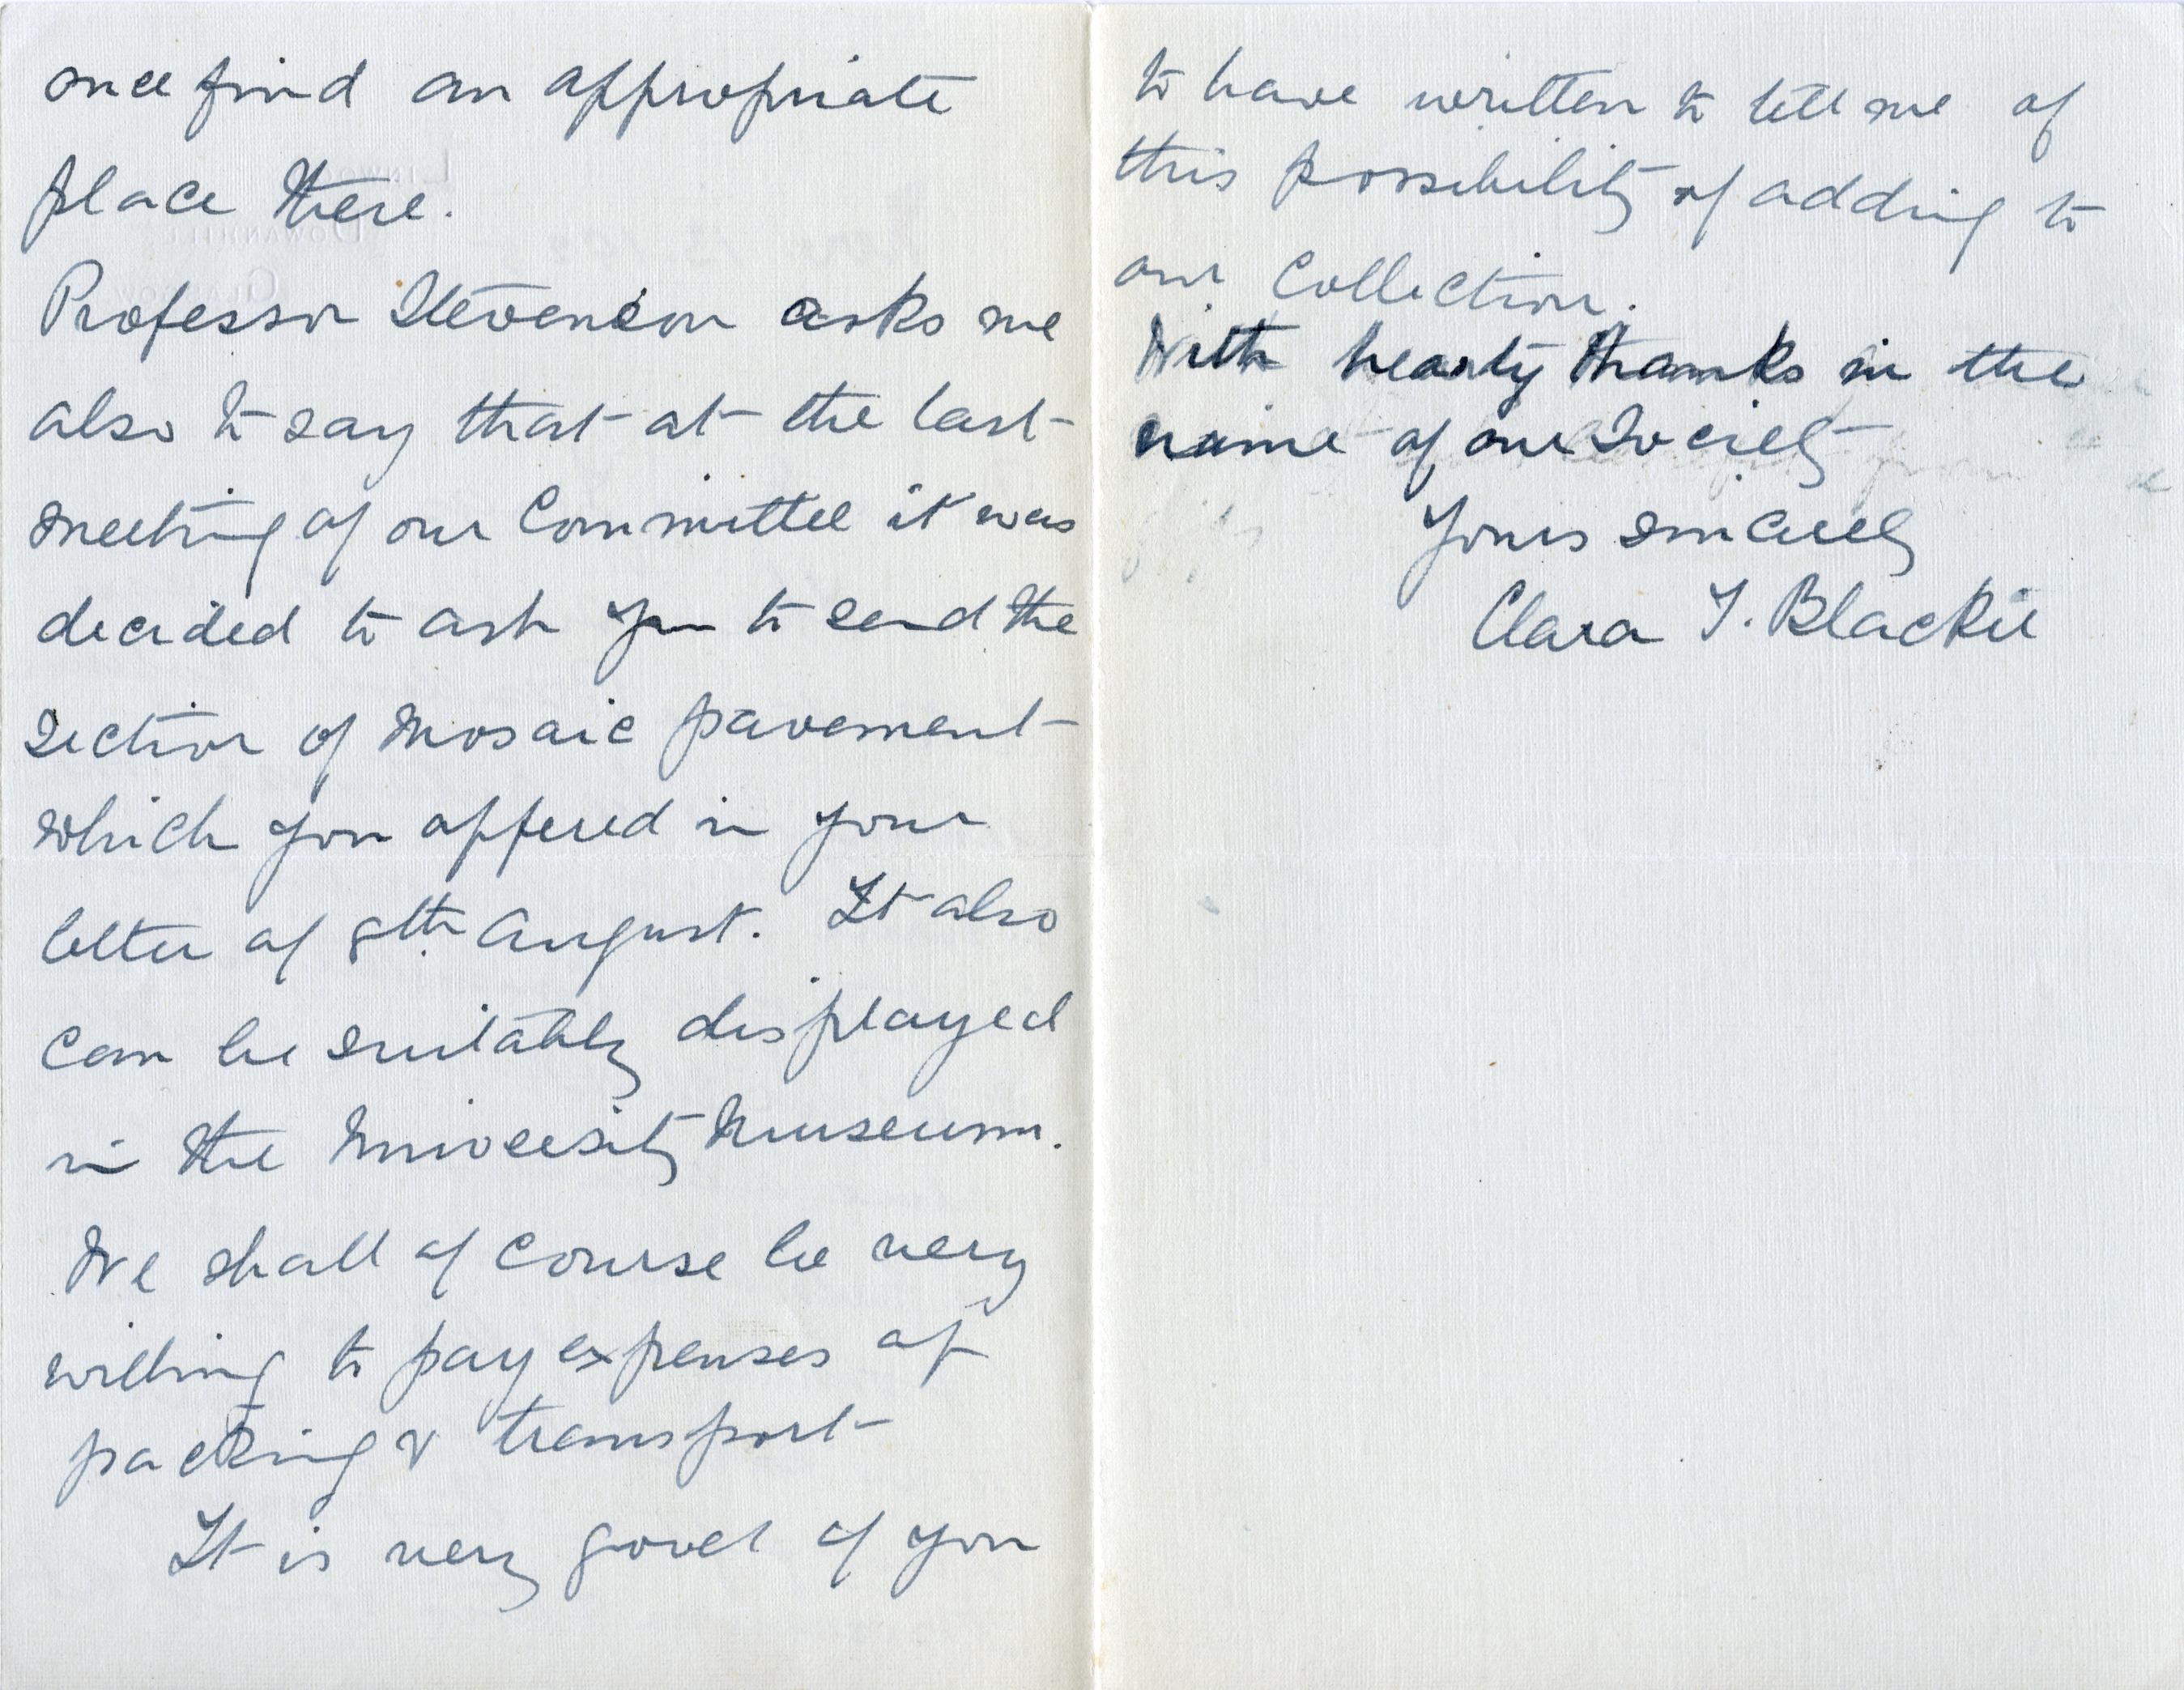 once find an appropriate
place there.
Professor Stevenson asks me
also to say that at the last
meeting of our Committee it was
decided to ask you to send the
section of Mosaic pavement
which you offered in your
letter of 8th August. It also
can be suitably displayed
in the University Museum.
We shall of course be very
willing to pay expenses of
packing & transport
It is very good of you
to have written to tell me of
this possibility of adding to
our Collection.
With hearty thanks in the
name of our Society
Yours sincerely
Clara T. Blackie